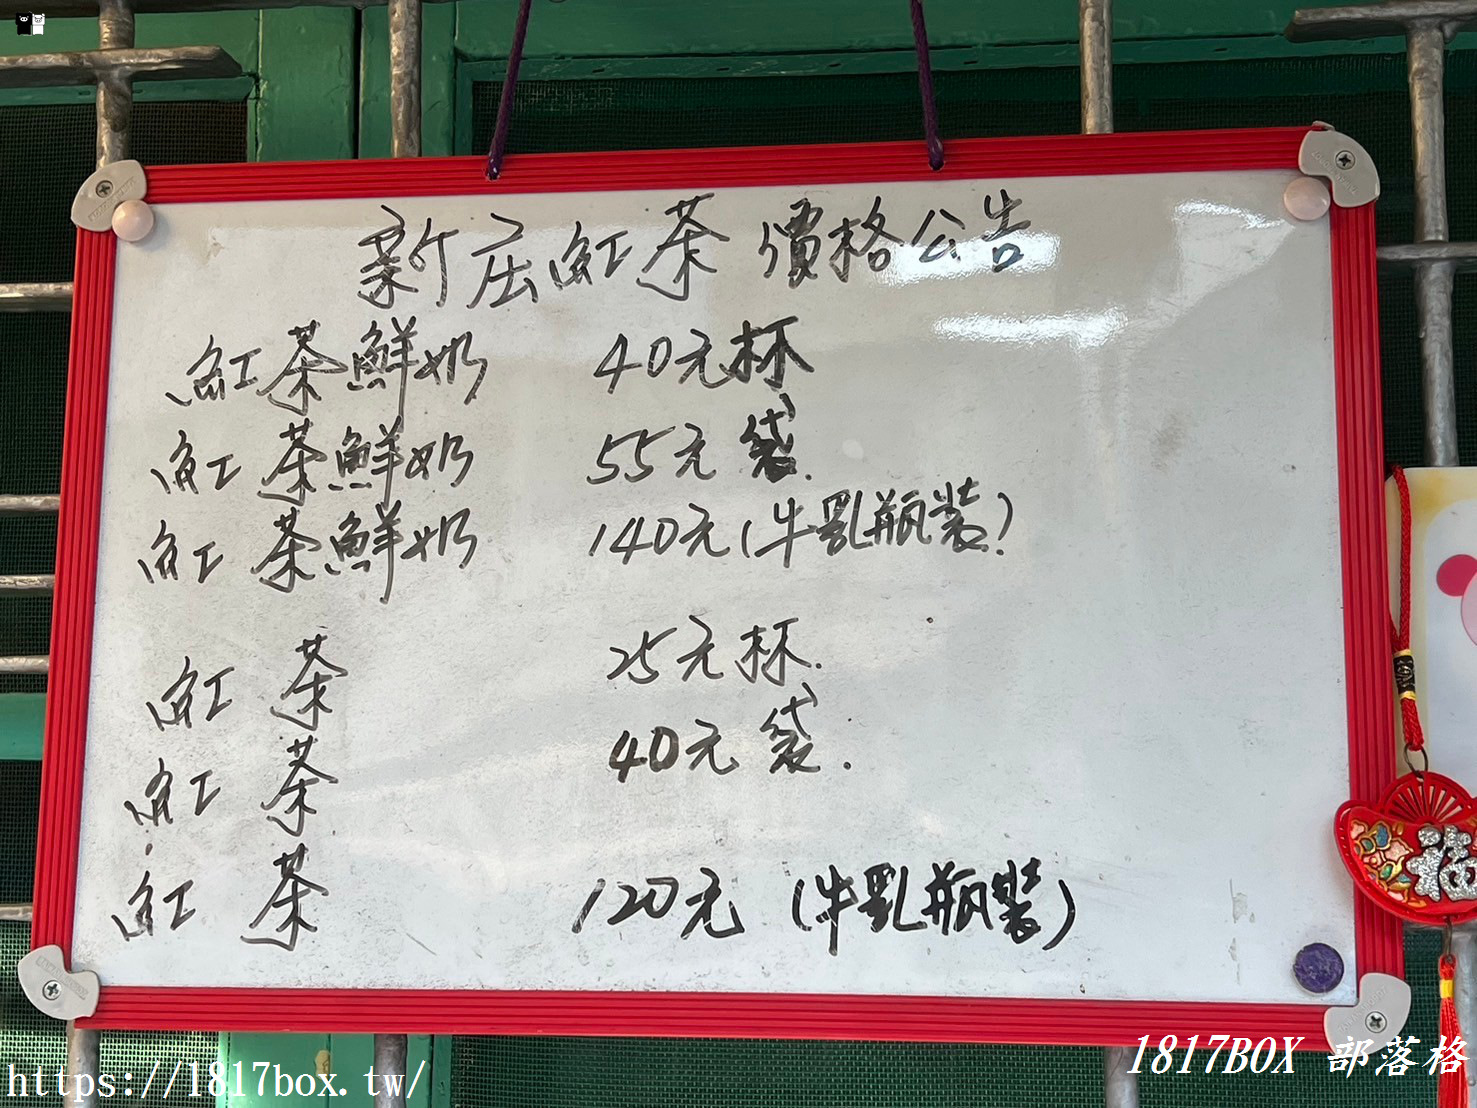 新庄紅茶 價格公告
紅茶鮮奶 40元杯
紅茶鮮奶 55元袋.
紅茶鮮奶 140元(牛乳瓶裝)
紅茶 25元杯.
紅茶 40元袋.
紅茶 120元(牛乳瓶裝)
福
https://1817box.tw/
1817BOX 部落格